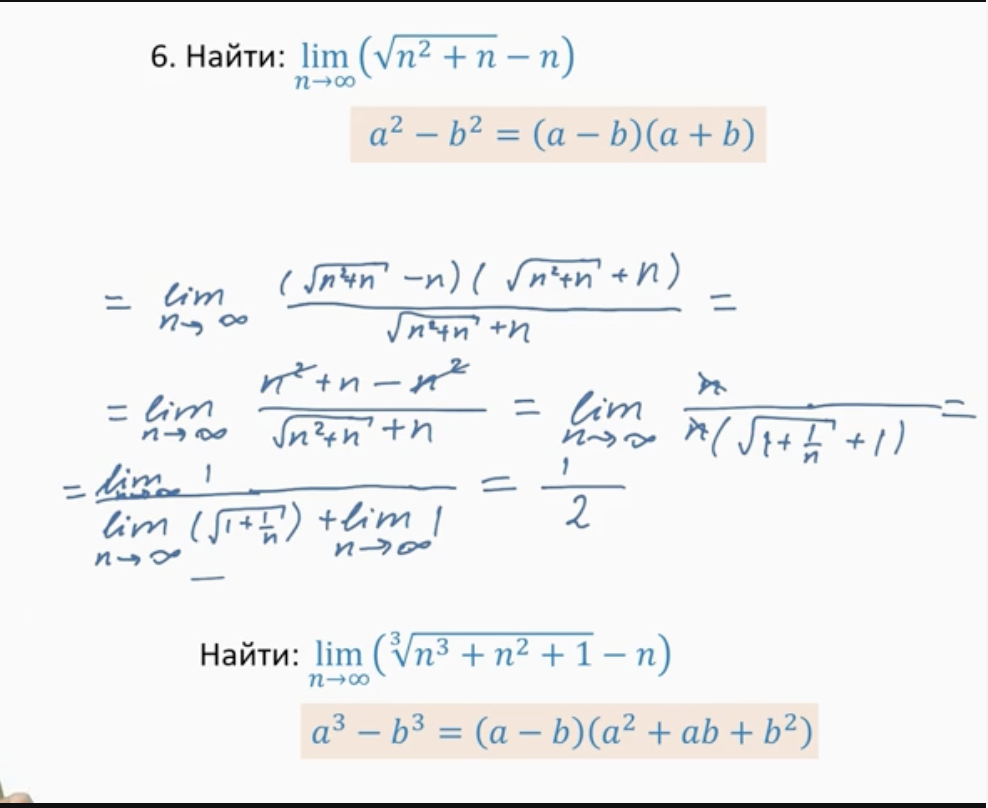 6. Найти: lim n→∞ (√(n² + n) − n)
a² − b² = (a − b)(a + b)
= lim n→∞ (√(n²+n) − n)(√(n²+n) + n) / (√(n²+n) + n) =
= lim n→∞ (n² + n − n²) / (√(n²+n) + n) = lim n→∞ n / (n(√(1 + 1/n) + 1)) =
= lim n→∞ 1 / (lim n→∞ (√(1 + 1/n)) + lim n→∞ 1) = 1/2
Найти: lim n→∞ (∛(n³ + n² + 1) − n)
a³ − b³ = (a − b)(a² + ab + b²)